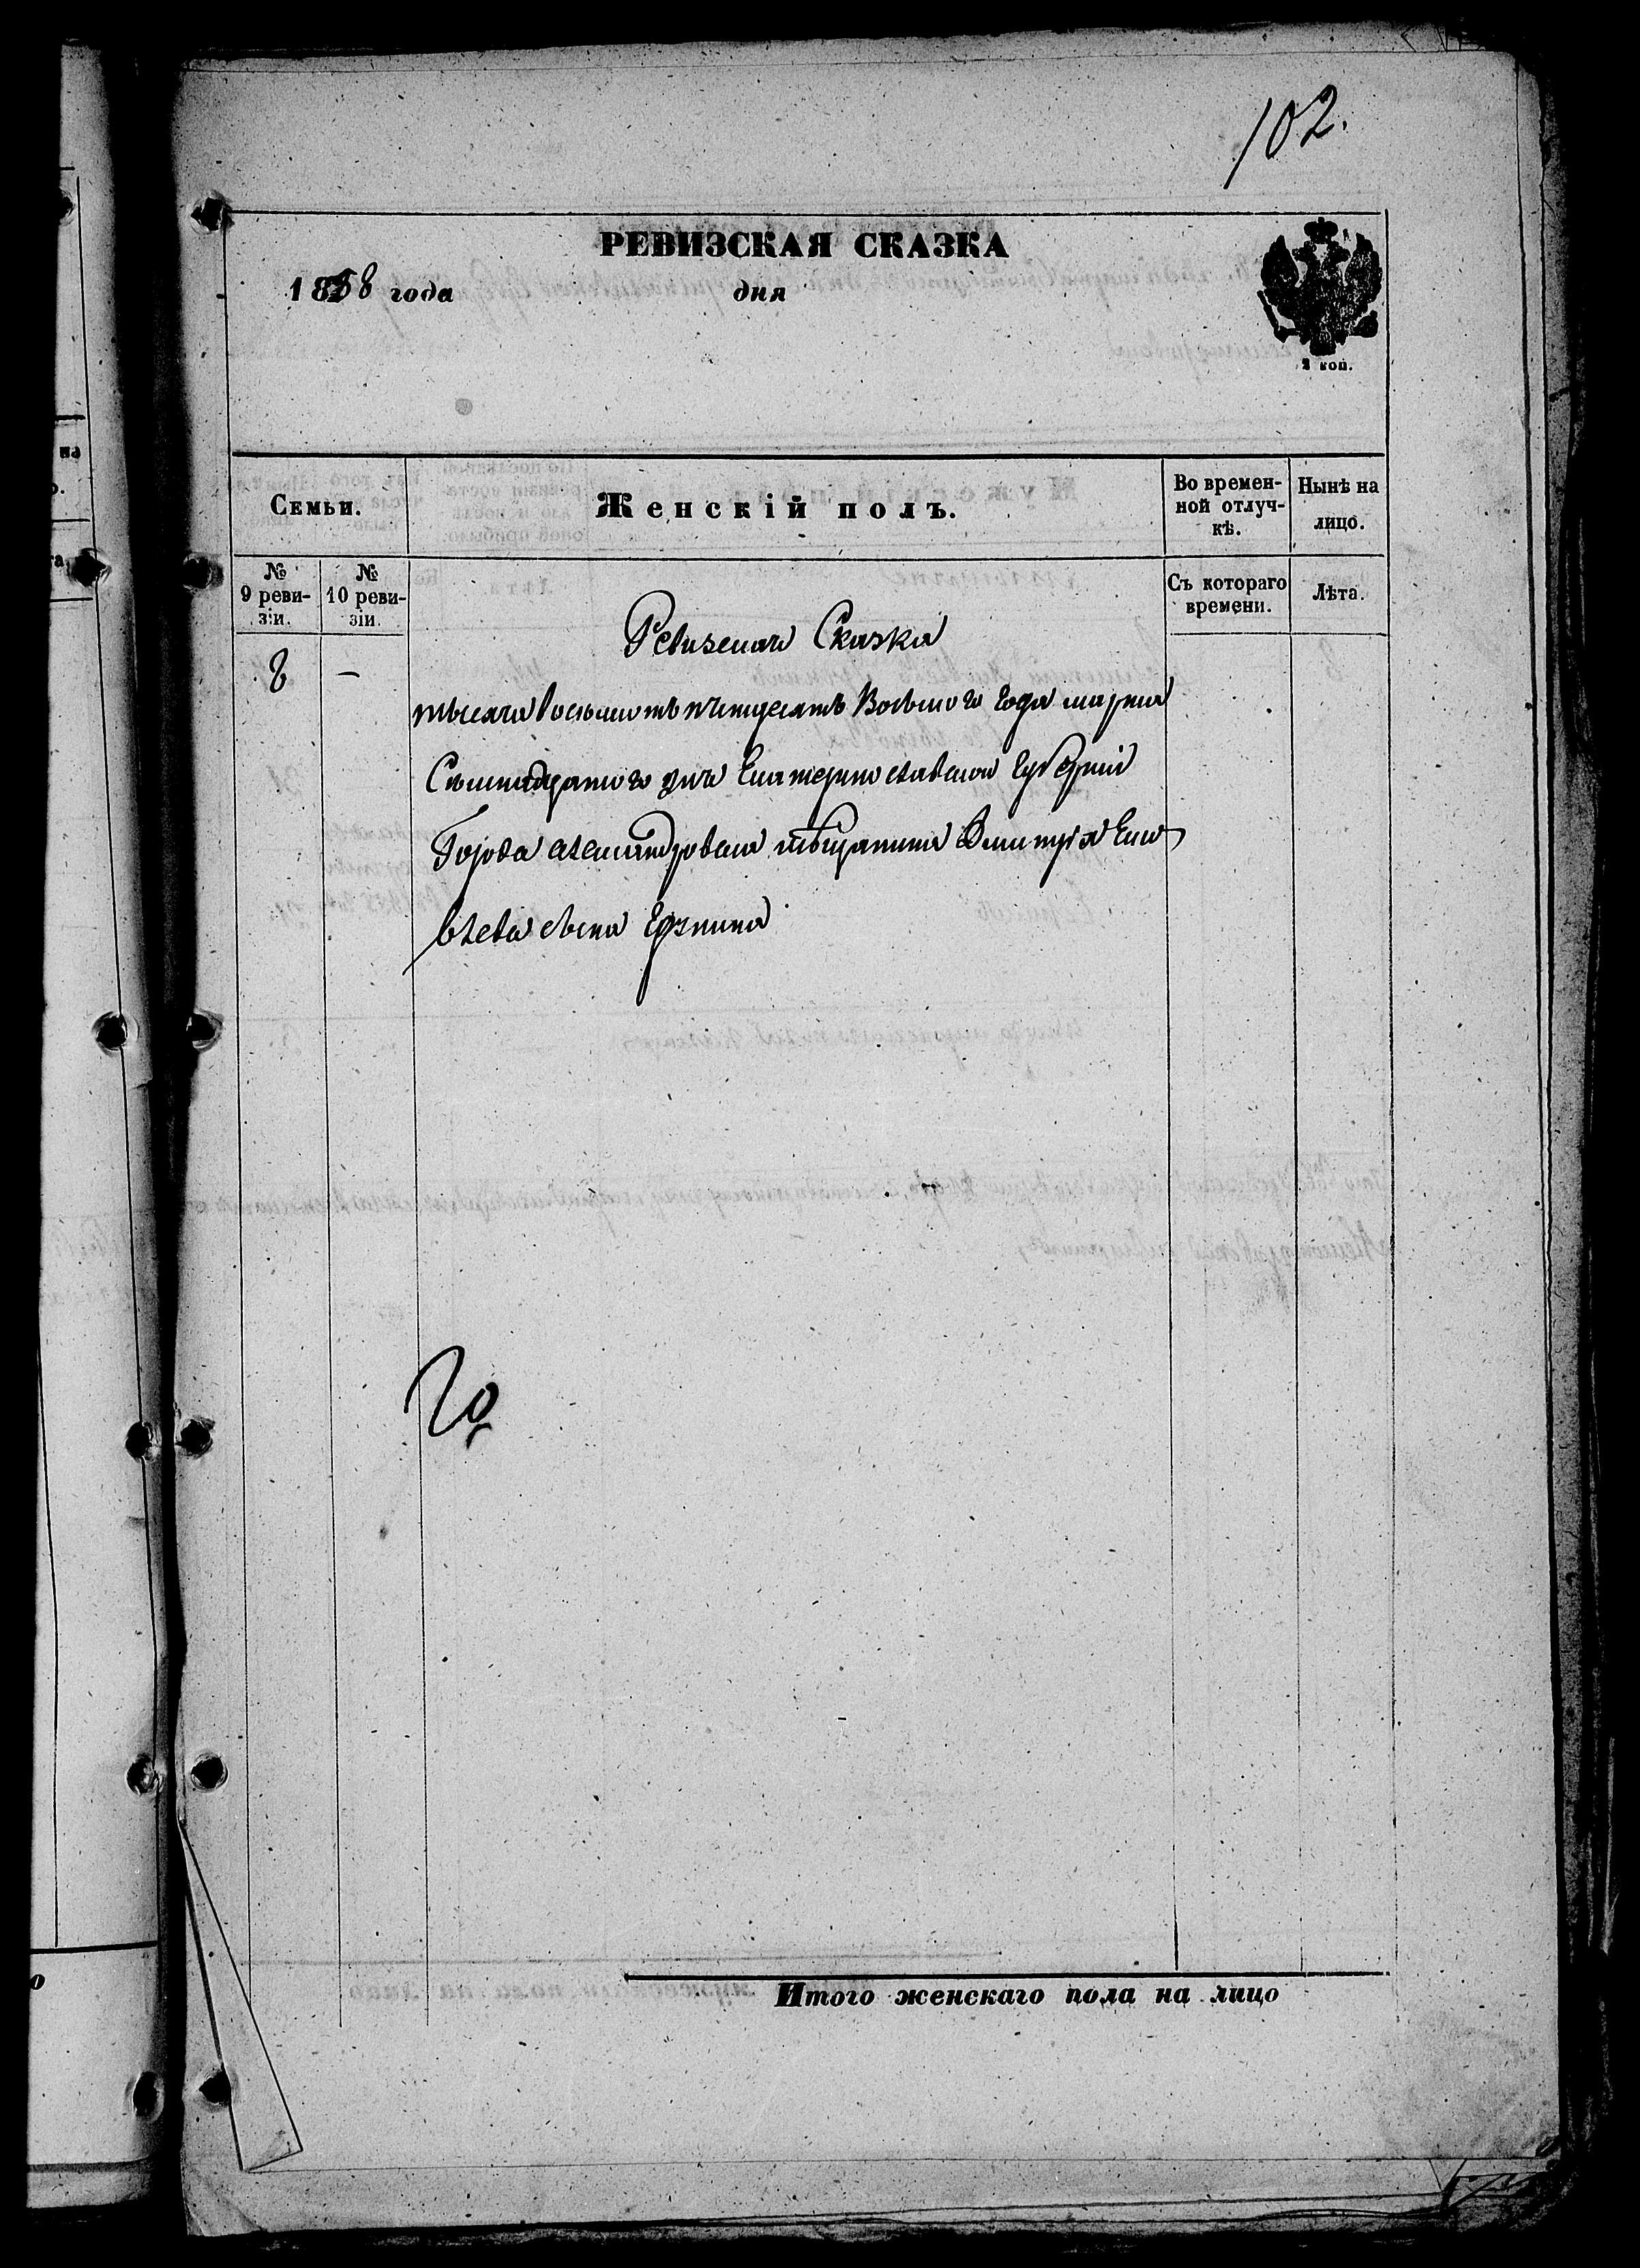 102.
РЕВИЗСКАЯ СКАЗКА
1858 года дня
2 коп.
Семьи.
Женскій полъ.
Во времен-
ной отлуч-
кѣ.
Нынѣ на
лицо.
№
9 реви-
зіи.
№
10 реви-
зіи.
Съ котораго
времени.
Лѣта.
Ревизская Сказка
8 —
тысяча восьмотъ пятидесятъ Восьмого Года марта
Сѣмнадцатого дня Екатеринославской Губерніи
Города александровска мѣщанина Дмитрія
сына
Итого женскаго пола на лицо